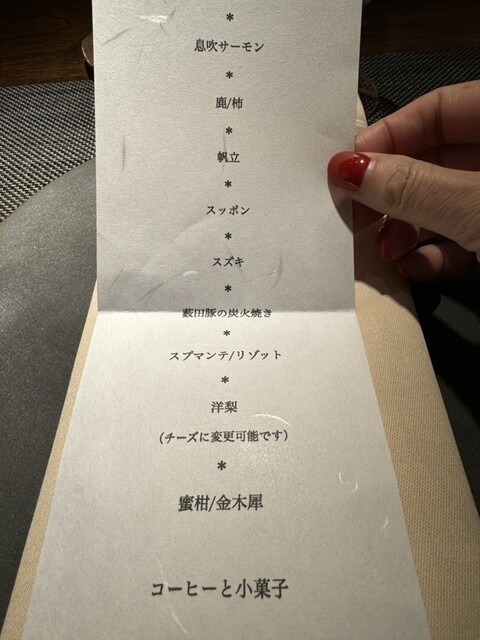 *
息吹サーモン
*
鹿/柿
*
帆立
*
スッポン
*
スズキ
*
藪田豚の炭火焼き
*
スプマンテ/リゾット
*
洋梨
（チーズに変更可能です）
*
蜜柑/金木犀
コーヒーと小菓子